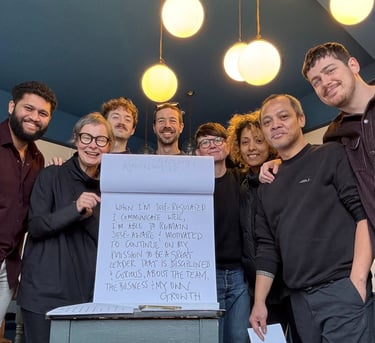 WHEN I'M SELF-REGULATED
& COMMUNICATE WELL,
I'M ABLE TO REMAIN
SELF-AWARE & MOTIVATED
TO CONTINUE ON MY
MISSION TO BE A GREAT
LEADER THAT IS DISCIPLINED
& CURIOUS, ABOUT THE TEAM,
THE BUSINESS & MY OWN
GROWTH